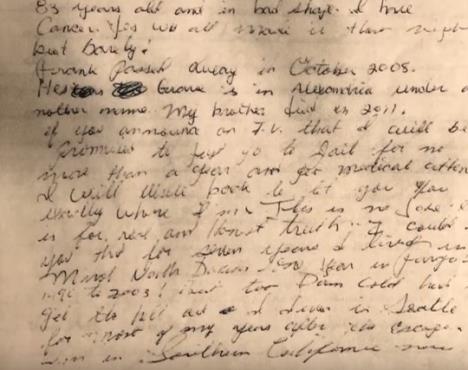 83 years old and in bad shape. I have
Cancer. Yes we all made it that night
but barely!
Frank Passed away in October 2008.
His Grave is in Alexandria under a
nother name. My brother died in 2011.
If you announce on T.V. that I will be
promised to first go to Jail for no
more than a year and get medical atten
I will write back to let you you
exactly where I am. This is no Joke
is for real and honest truth. I could
you that for seven years I lived in
Minot North Dacota year in Fargo
to 2003!
for most of my years after the escape.
in Southern California now